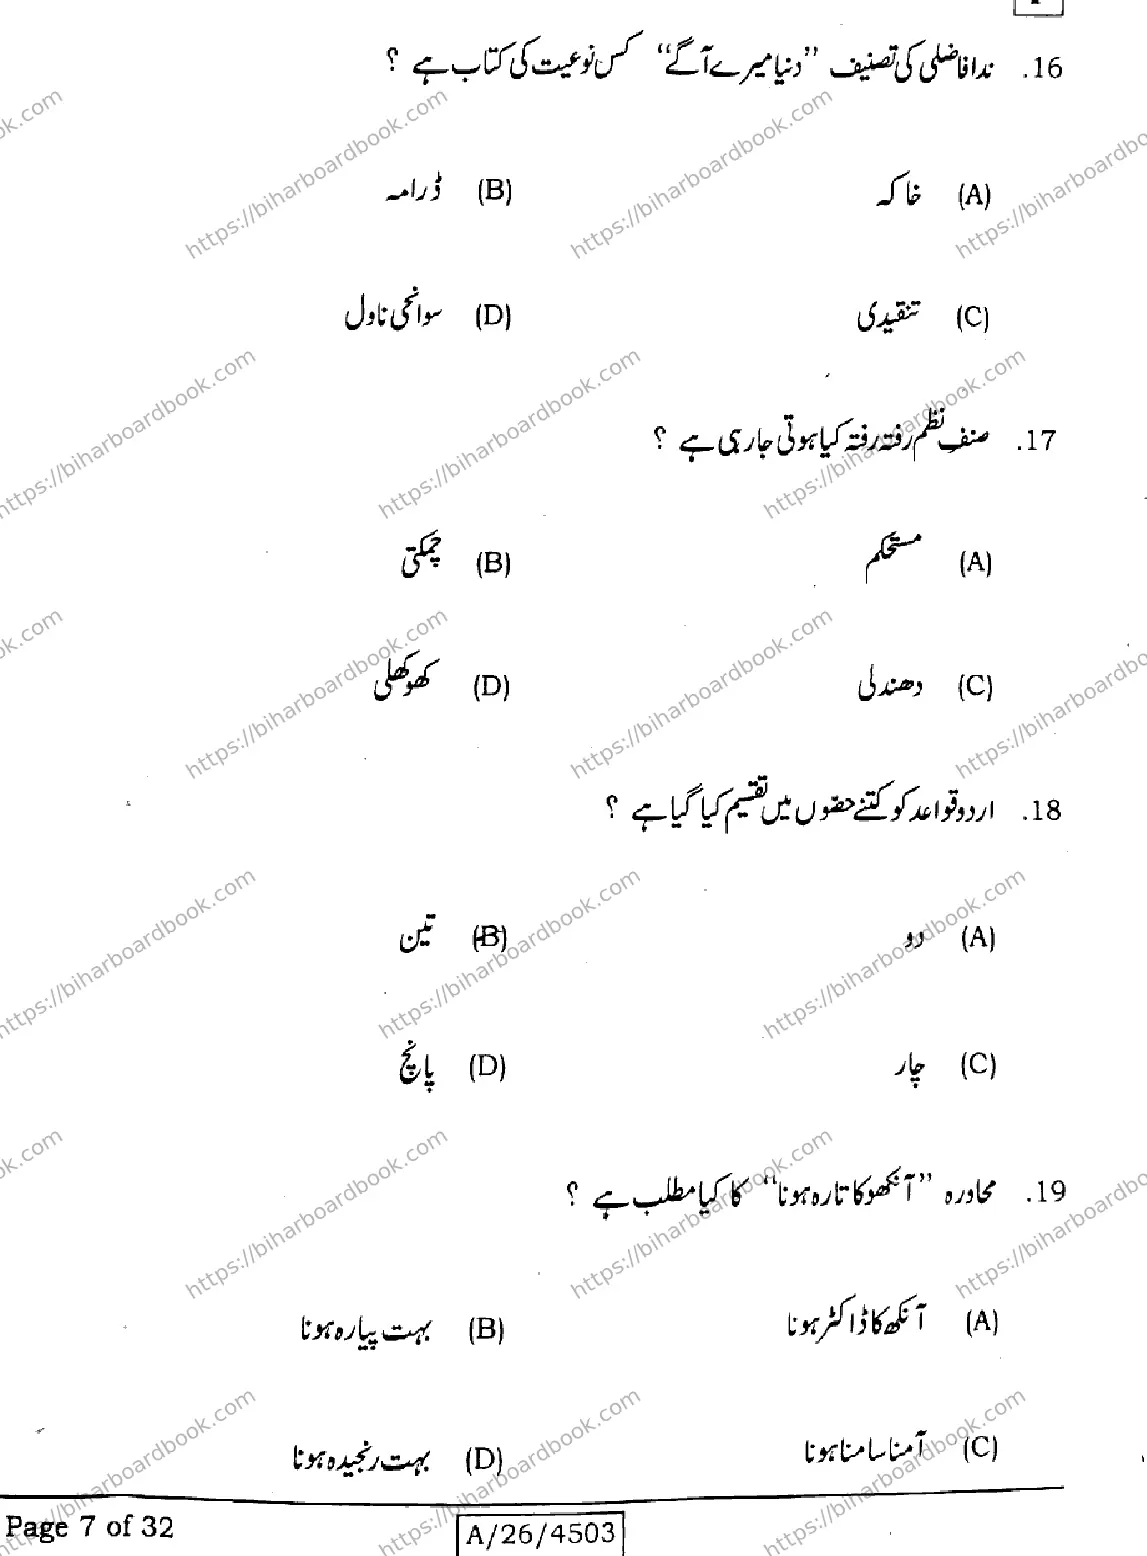 16. ندا فاضلی کی تصنیف ”دنیا میرے آگے“ کس نوعیت کی کتاب ہے ؟
(A) خاکہ (B) ڈرامہ
(C) تنقیدی (D) سوانحی ناول
17. صنف نظم رفتہ رفتہ کیا ہوتی جا رہی ہے ؟
(A) مستحکم (B) چمکتی
(C) دھندلی (D) کھوکھلی
18. اردو قواعد کو کتنے حصّوں میں تقسیم کیا گیا ہے ؟
(A) دو (B) تین
(C) چار (D) پانچ
19. محاورہ ”آنکھو کا تارہ ہونا“ کا کیا مطلب ہے ؟
(A) آنکھ کا ڈاکٹر ہونا (B) بہت پیارہ ہونا
(C) آمنا سامنا ہونا (D) بہت رنجیدہ ہونا
Page 7 of 32 A/26/4503
https://biharboardbook.com